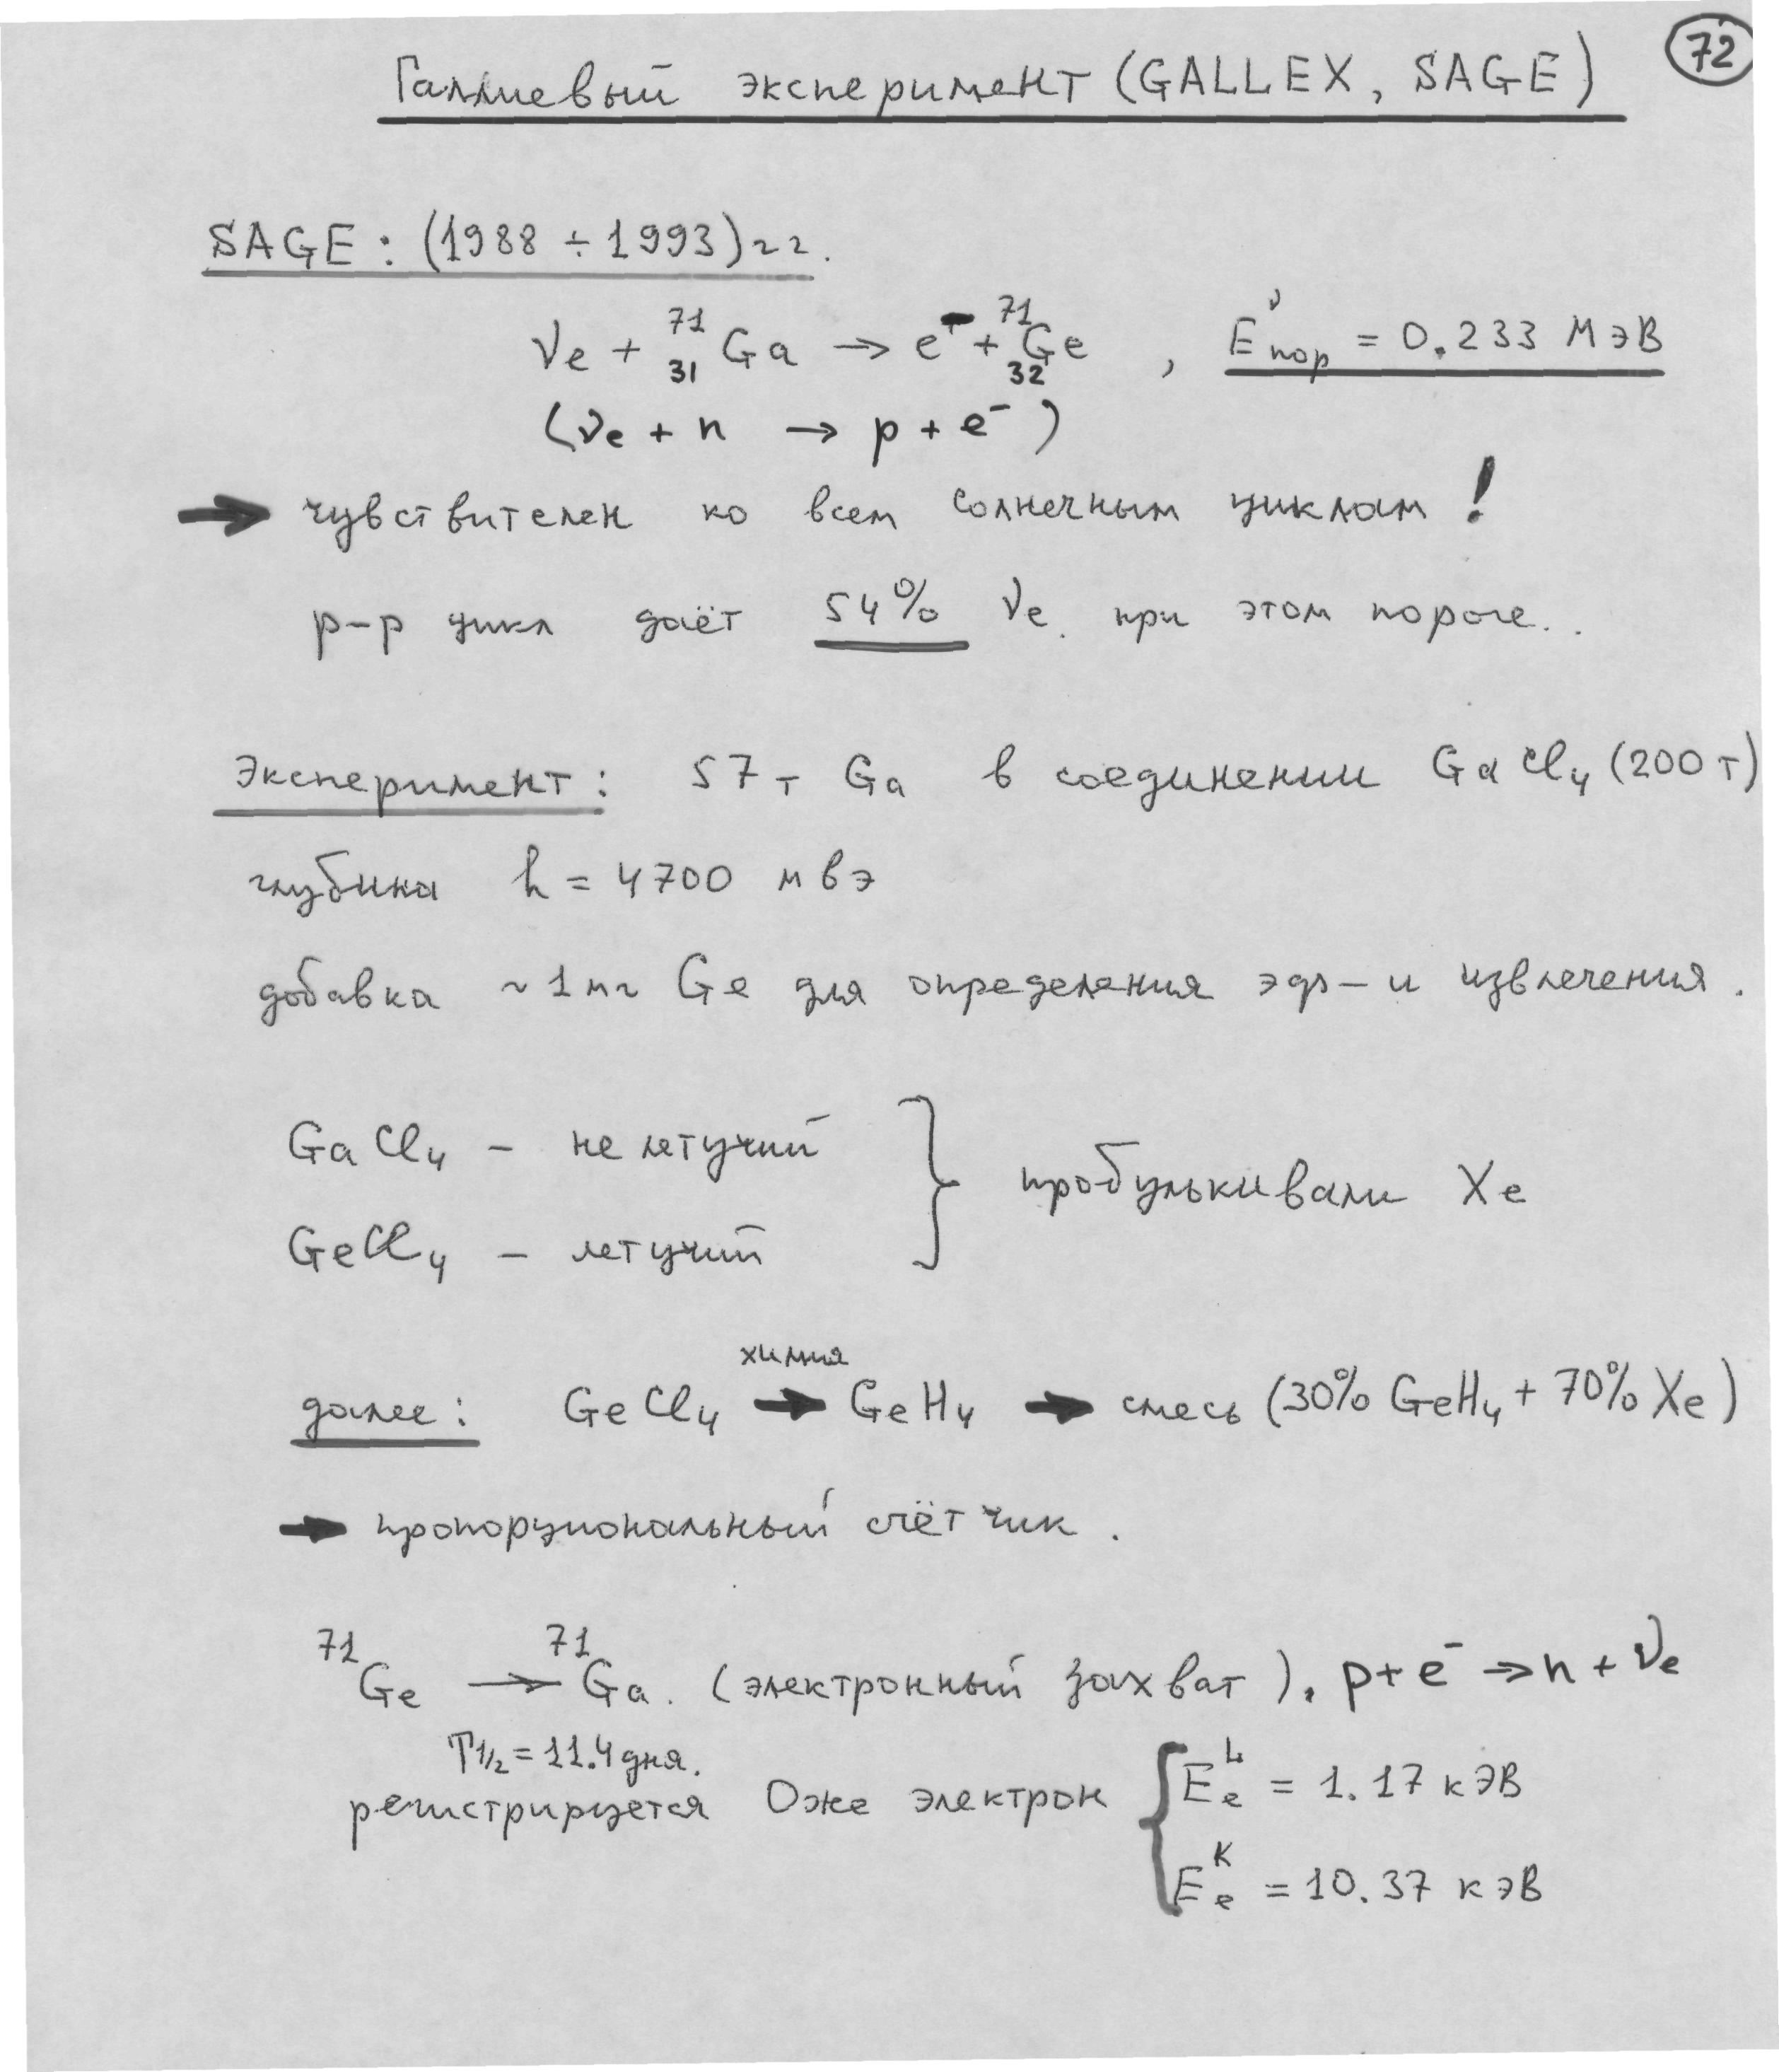 72
Галлиевый эксперимент (GALLEX, SAGE)
SAGE: (1988 ÷ 1993) гг.
νe + ⁷¹₃₁Ga → e⁻ + ⁷¹₃₂Ge , E^ν_пор = 0.233 МэВ
(νe + n → p + e⁻)
➔ чувствителен ко всем солнечным циклам!
p-p цикл даёт 54% νe при этом пороге..
Эксперимент: 57 т Ga в соединении GaCl₄ (200 т)
глубина h = 4700 м в э
добавка ~ 1 мг Ge для определения эф-и извлечения.
GaCl₄ - не летучий
GeCl₄ - летучий
} пробулькивали Xe
химия
далее: GeCl₄ ➔ GeH₄ ➔ смесь (30% GeH₄ + 70% Xe)
➔ пропорциональный счётчик.
⁷¹Ge → ⁷¹Ga. (электронный захват), p + e⁻ → n + νe
T1/2 = 11.4 дня.
регистрируется Оже электрон { E^L_e = 1.17 кЭВ
E^K_e = 10.37 кэВ